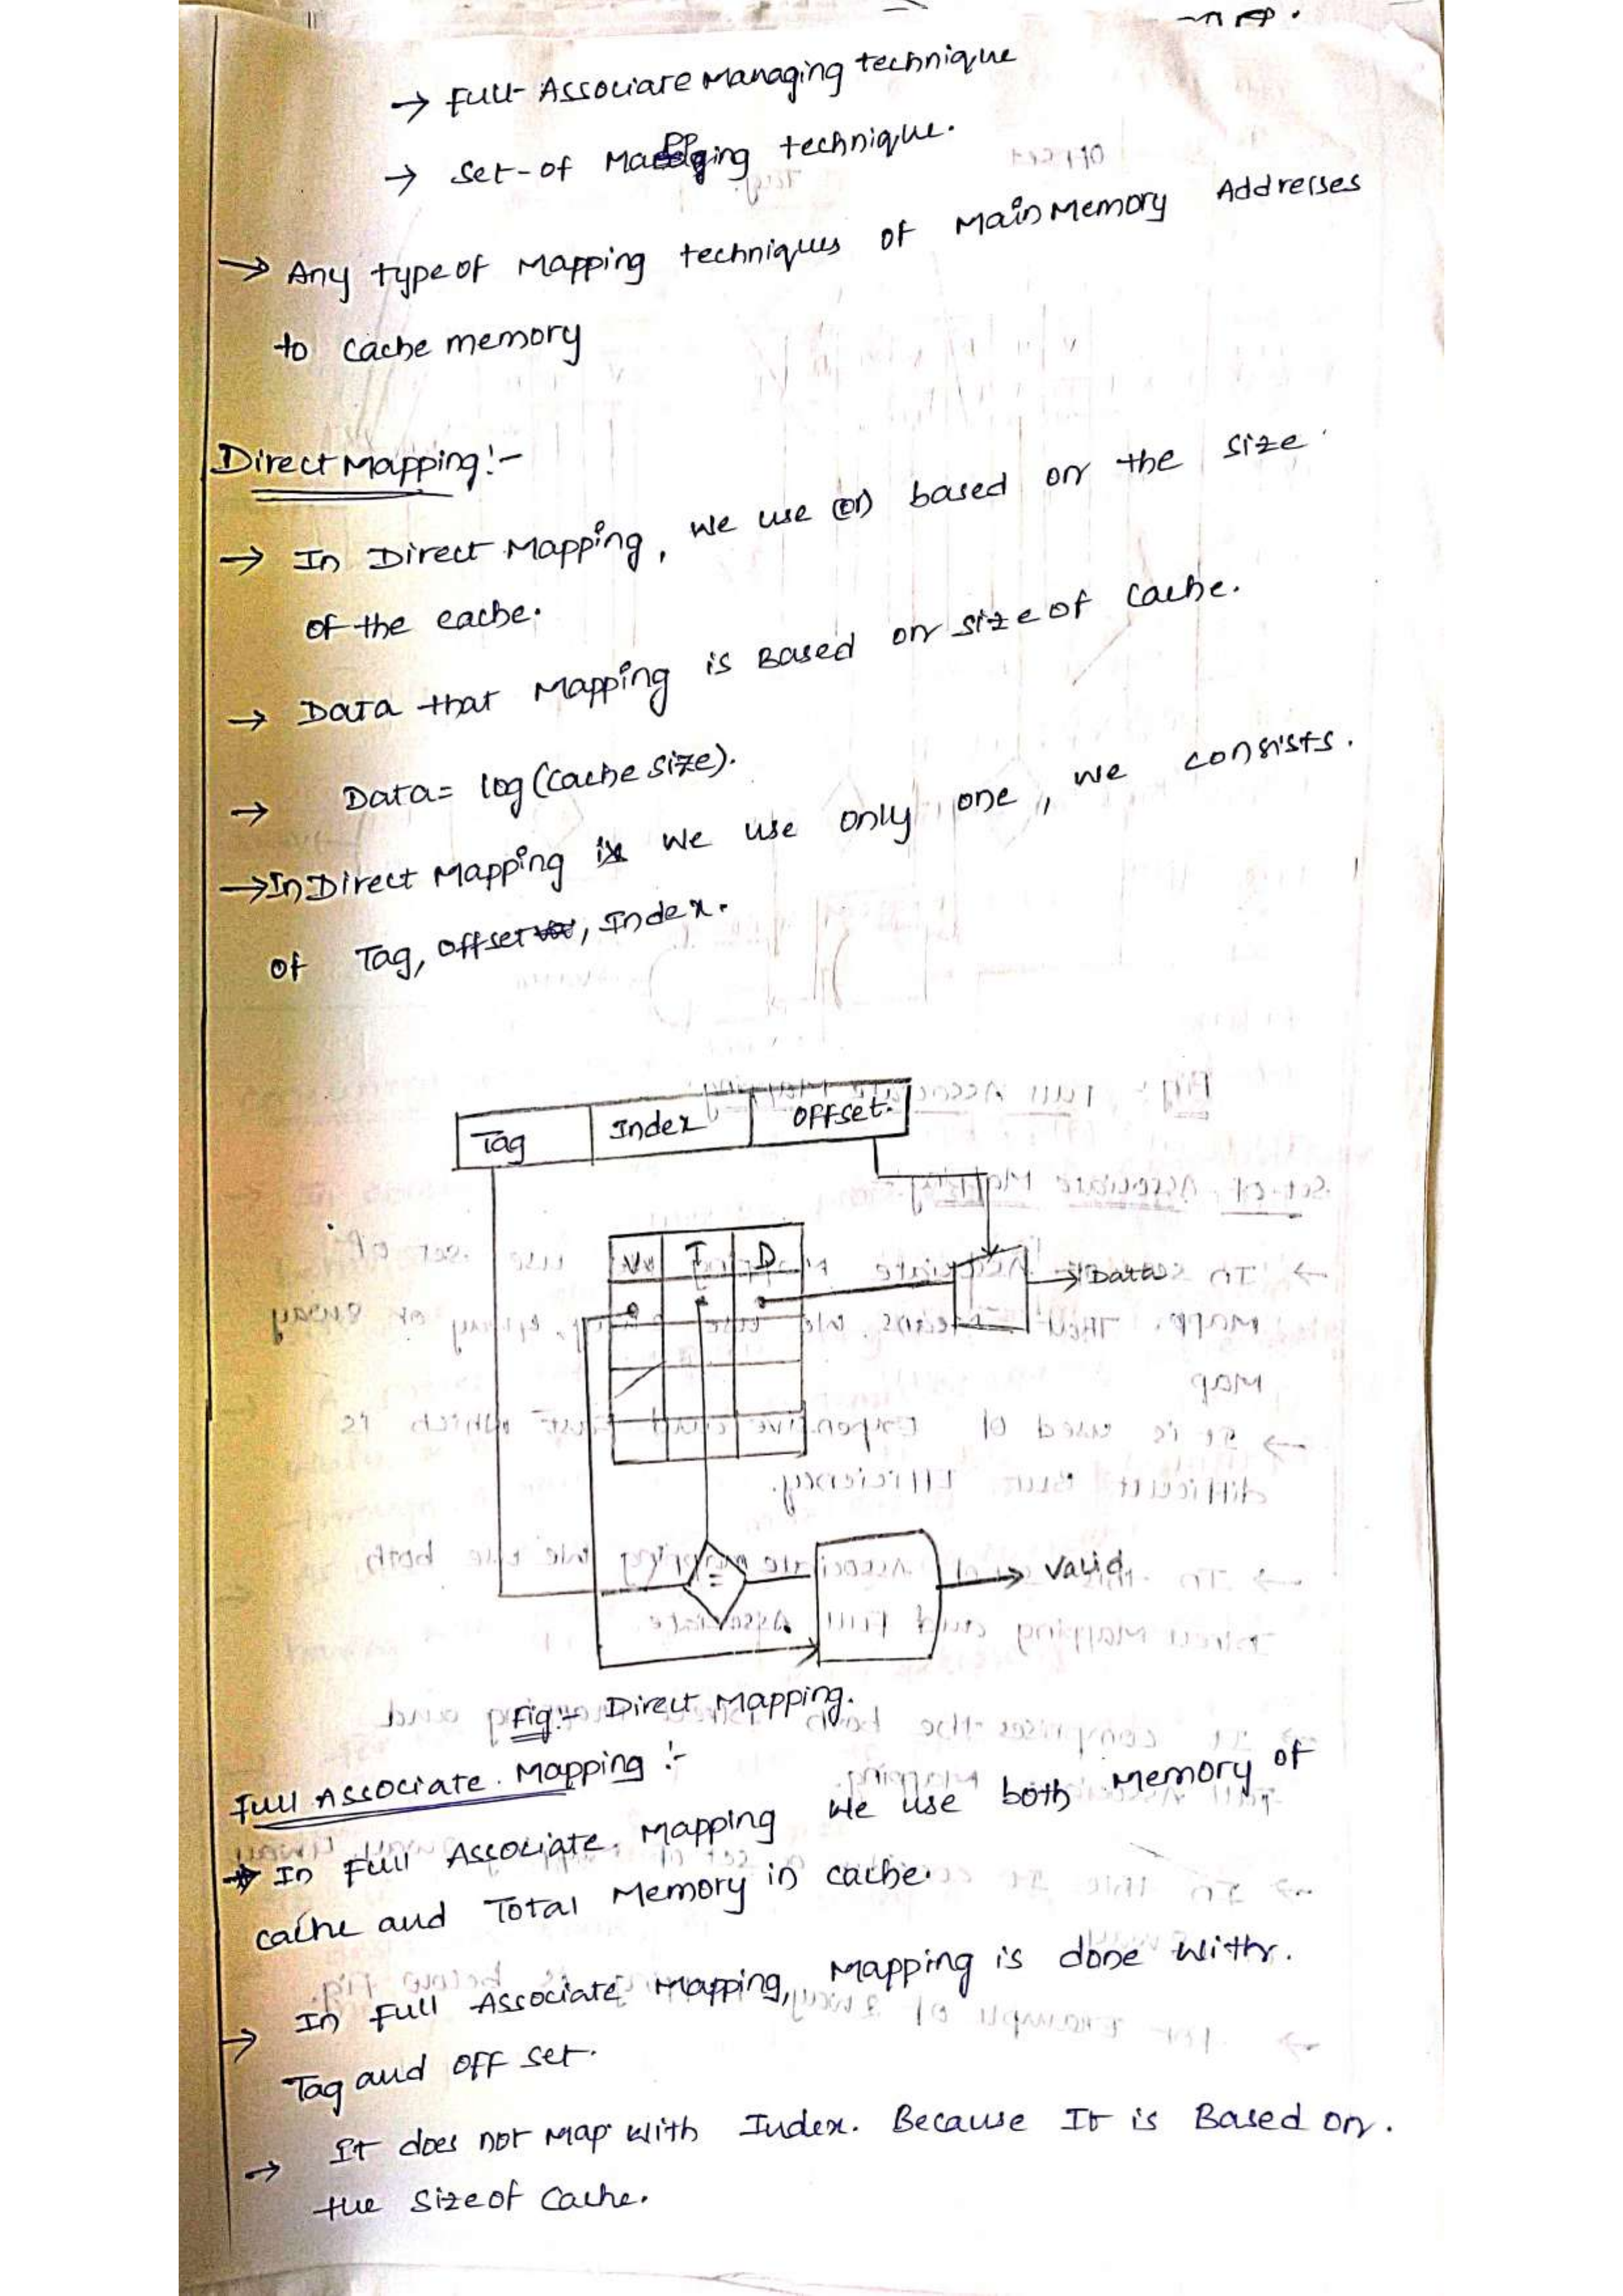 → Full-Associare Managing technique
→ Set-of Mapping technique.
→ Any type of Mapping techniques of Main Memory Addresses
to cache memory
Direct Mapping:-
→ In Direct Mapping, we use (or) based on the size
of the cache.
→ Data that Mapping is Based on size of cache.
→ Data= log (cache size).
→ In Direct Mapping we use only one, we consists.
of Tag, offset, Index.
Tag Index OFFset.
V T D
Data
=
Valid
Fig:- Direct Mapping.
Full Associate. Mapping :-
→ In Full Associate. Mapping We use both Memory of
cache and Total Memory in cache.
→ In Full Associate Mapping, Mapping is done with.
Tag and OFF set.
→ It does not Map with Index. Because It is Based on.
the size of Cache.